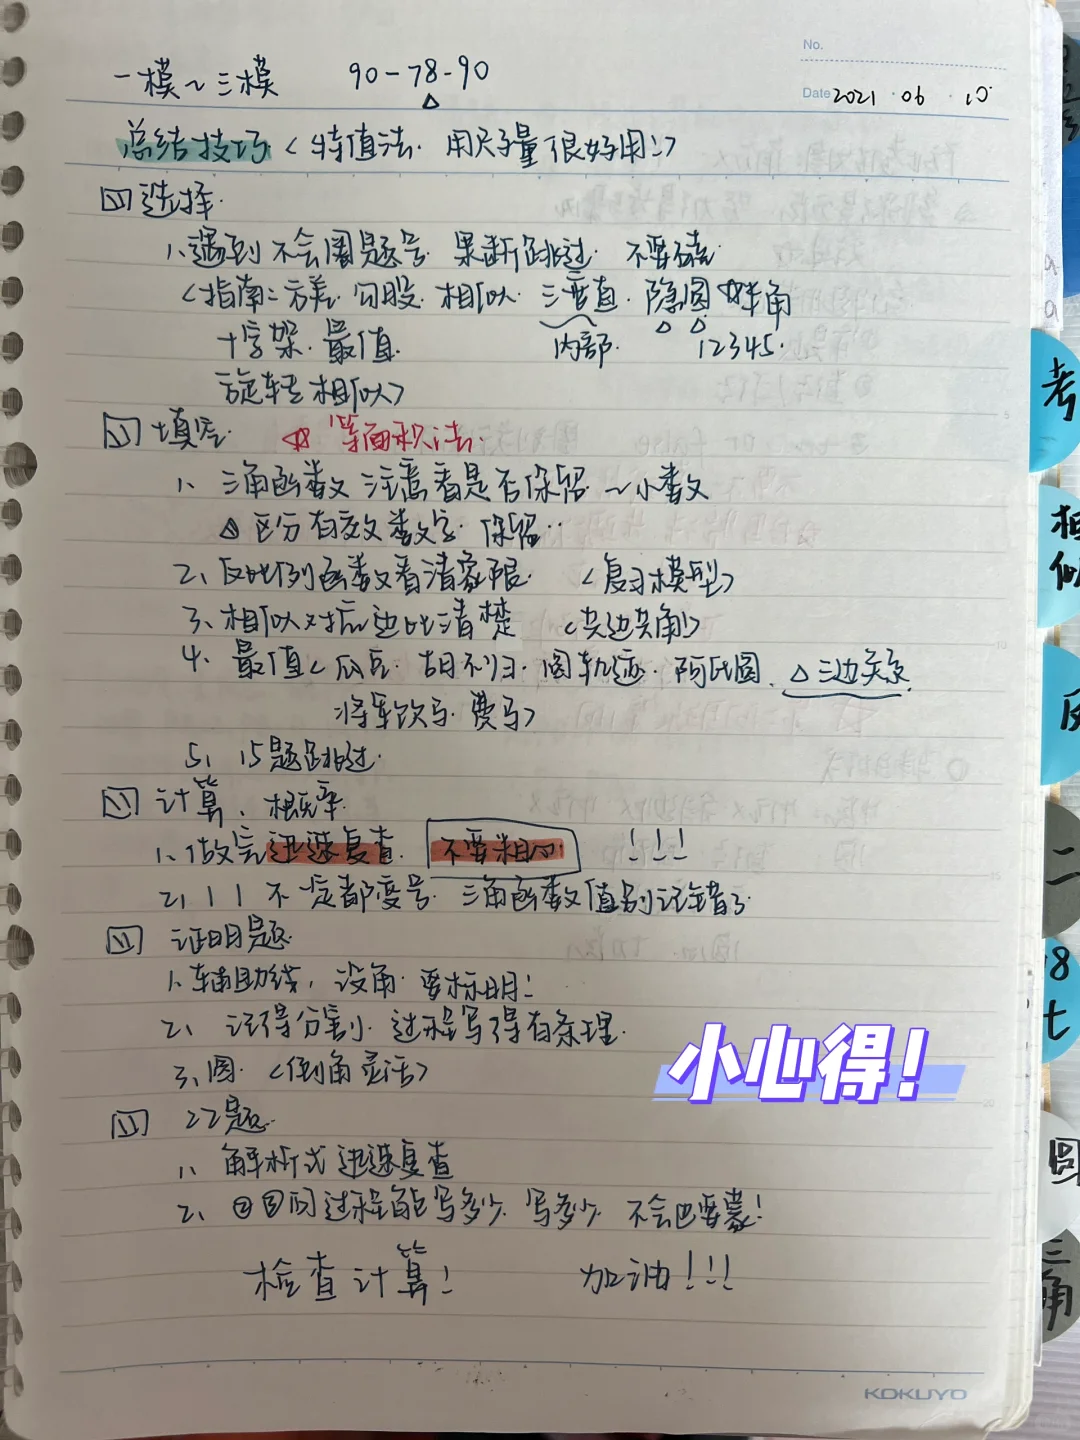 No.
一模~三模 90-78-90
Date 2021·06·10
总结技巧<特值法. 用尺子量很好用!>
选择.
1、遇到不会圈题号 果断跳过. 不要磕
<指南:方差. 勾股. 相似. 三垂直. 隐圆 半角
十字架. 最值. 内部. 12345.
旋转相似>
填空. 等面积法.
1、三角函数 注意看是否保留~小数
△区分有效数字. 保留..
2、反比例函数看清象限. <复习模型>
3、相似对应边比清楚 <共边共角>
4、最值<瓜豆. 胡不归. 圆轨迹. 阿氏圆. △三边关系.
将军饮马. 费马>
5、15题跳过.
计算、概率.
1、做完迅速复查. 不要粗心. !!!
2、| | 不一定都变号. 三角函数值别记错了
证明题.
1、辅助线, 设角. 要标明!
2、记得分割. 过程写得有条理.
3、圆. <倒角灵活>
小心得!
22题.
1、解析式迅速复查
2、②③问过程能写多少. 写多少. 不会也要蒙!
检查计算! 加油!!!
KOKUYO
考
一
相似
反
二
18
七
圆
三角